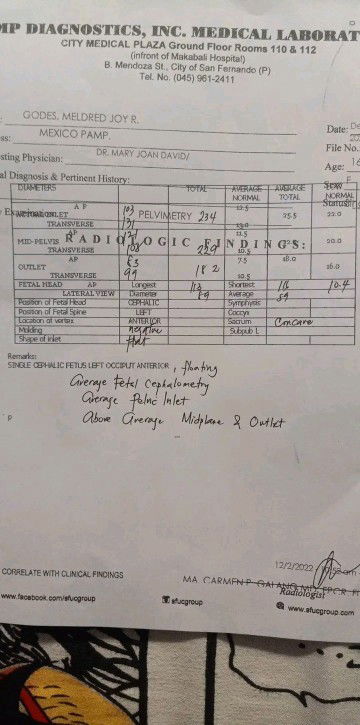 MP DIAGNOSTICS, INC. MEDICAL LABORAT
CITY MEDICAL PLAZA Ground Floor Rooms 110 & 112
(infront of Makabali Hospital)
B. Mendoza St., City of San Fernando (P)
Tel. No. (045) 961-2411
GODES, MELDRED JOY R.
ss: MEXICO PAMP. Date: De
sting Physician: DR. MARY JOAN DAVID/ File No.
Age: 16
al Diagnosis & Pertinent History: Sex F
Status
DIAMETERS TOTAL AVERAGE NORMAL AVERAGE TOTAL NORMAL
AP 103 12.5
INLET PELVIMETRY 234 25.5 22.0
TRANSVERSE 131 13.0
AP 121 11.5
MID-PELVIS RADIOLOGIC FINDINGS: 229 20.0
TRANSVERSE 108 10.5
AP 83 7.5
OUTLET 182 18.0 16.0
TRANSVERSE 99 10.5
FETAL HEAD AP Longest Shortest 10.4
LATERAL VIEW Diameter 89 Average 89
Position of Fetal Head CEPHALIC Symphysis
Position of Fetal Spine LEFT Coccyx
Location of vertex ANTERIOR Sacrum Concave
Molding negative Subpub
Shape of inlet flat
Remarks:
SINGLE CEPHALIC FETUS LEFT OCCIPUT ANTERIOR, floating
Average Fetal Cephalometry
Average Pelvic Inlet
Above Average Midplane & Outlet
P
12/2/2022
CORRELATE WITH CLINICAL FINDINGS
MA. CARMEN P. GALANG MD FPCR
Radiologist
www.facebook.com/sfucgroup
sfucgroup
www.sfucgroup.com